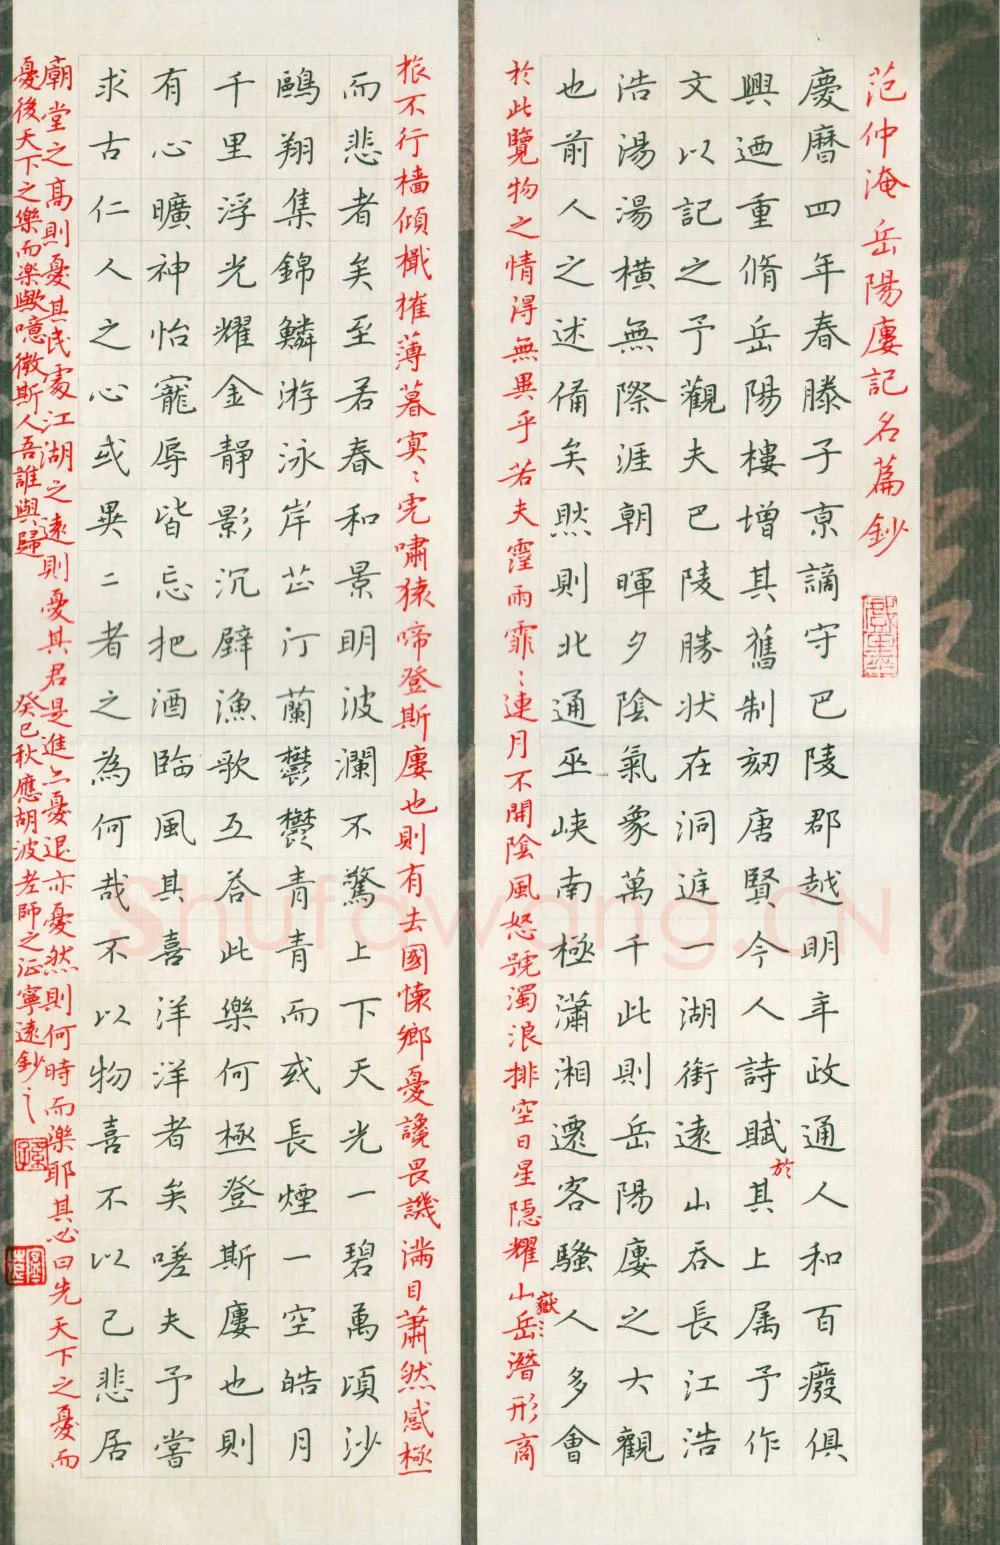 范仲淹岳陽廔記名篇鈔
慶曆四年春滕子京謫守巴陵郡越明年政通人和百癈俱
興迺重脩岳陽樓增其舊制刻唐賢今人詩賦於其上属予作
文以記之予觀夫巴陵勝状在洞庭一湖銜遠山吞長江浩
浩湯湯橫無際涯朝暉夕陰氣象萬千此則岳陽廔之大觀
也前人之述備矣然則北通巫峽南極瀟湘遷客騷人多會
於此覽物之情得無異乎若夫霪雨霏〻連月不開陰風怒號濁浪排空日星隱耀山岳潛形商
嶽〻
旅不行檣傾檝摧薄暮冥〻虎嘯猿啼登斯廔也則有去國懷鄉憂讒畏譏滿目蕭然感極
而悲者矣至若春和景明波瀾不驚上下天光一碧萬頃沙
鷗翔集錦鱗游泳岸芷汀蘭鬱鬱青青而或長煙一空皓月
千里浮光耀金靜影沉璧漁歌互答此樂何極登斯廔也則
有心曠神怡寵辱皆忘把酒臨風其喜洋洋者矣嗟夫予嘗
求古仁人之心或異二者之為何哉不以物喜不以己悲居
廟堂之高則憂其民處江湖之遠則憂其君是進亦憂退亦憂然則何時而樂耶其必曰先天下之憂而
憂後天下之樂而樂歟噫微斯人吾誰與歸
癸巳秋應胡波老師之征寧遠鈔之
Shufawang.CN